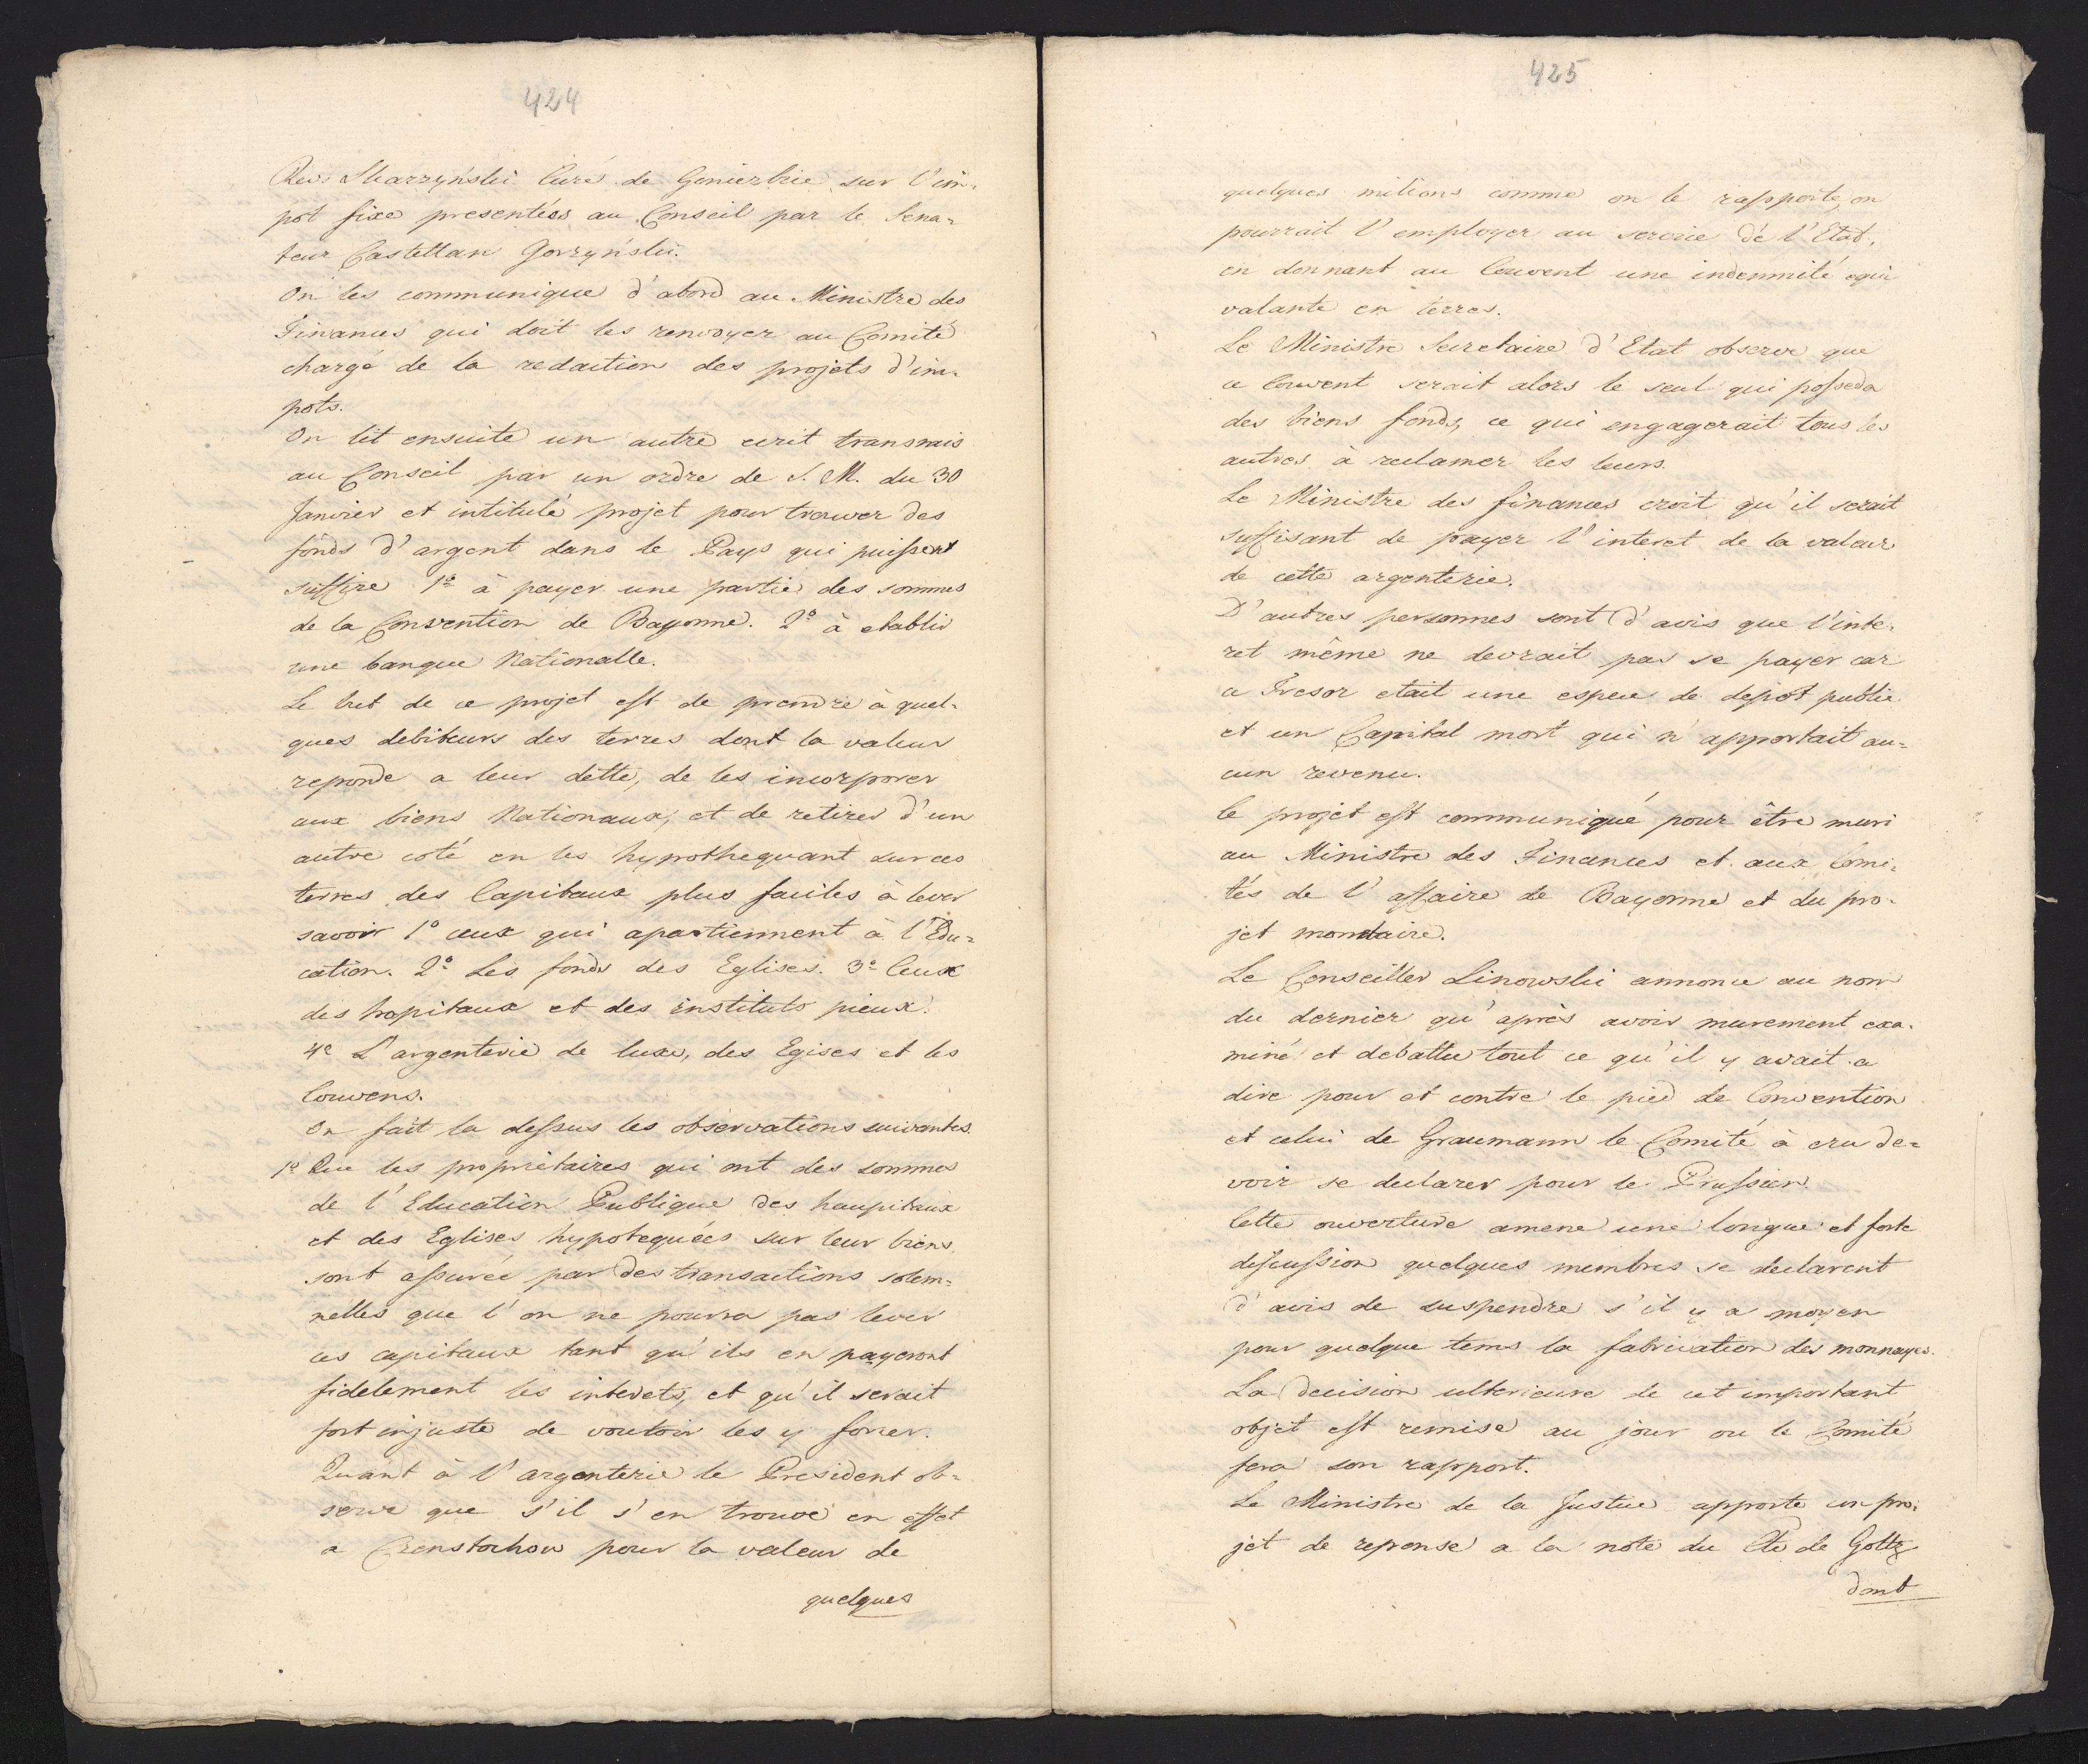 424
Skarzyński Curé de sur l'im-
pot fixe presentées au Conseil par le Sena-
teur Castellan Gorzyński.
On les communique d'abord au Ministre des
Finances qui doit les renvoyer au Comité
chargé de la redaction des projets d'im-
pots.
On lit ensuite un autre ecrit transmis
au Conseil par un ordre de S. M. du 30
Janvier et intitulé projet pour trouver des
fonds d'argent dans le Pays qui puissent
suffire 1º à payer une partie des sommes
de la Convention de Bayonne. 2º à etablir
une banque Nationalle.
Le but de ce projet est de prendre à quel-
ques debiteurs des terres dont la valeur
reponde a leur dette, de les incorporer
aux biens Nationaux, et de retirer d'un
autre coté en les hypothequant sur ces
terres des Capitaux plus faciles à lever
savoir 1º ceux qui apartiennent à l'Edu-
cation. 2º Les fonds des Eglises. 3º Ceux
des hopitaux et des instituts pieux.
4º L'argenterie de luxe, des Egises et les
Couvens.
On fait la dessus les observations suivantes.
1º Que les proprietaires qui ont des sommes
de l'Education Publique des haupitaux
et des Eglises hypotequées sur leur biens,
sont assuréé par des transactions solem-
nelles que l'on ne pourra pas lever
ces capitaux tant qu'ils en payeront
fidelement les interets, et qu'il serait
fort injuste de vouloir les y forcer.
Quant à l'argenterie le President ob-
serve que s'il s'en trouve en effet
a Czenstochow pour la valeur de
quelques
425
quelques milions comme on le rapporte, on
pourrait l'employer au service de l'Etat,
en donnant au Couvent une indemnité equi
valante en terres.
Le Ministre Secretaire d'Etat observe que
ce Couvent serait alors le seul qui posseda
des biens fonds, ce qui engagerait tous les
autres à reclamer les leurs.
Le Ministre des finances croit qu'il serait
suffisant de payer l'interet de la valeur
de cette argenterie.
D'autres personnes sont d'avis que l'inte-
ret même ne devrait pas se payer car
ce Tresor etait une espece de depot public
et un Capital mort qui n'apportait au-
cun revenu.
le projet est communiqué pour être muri
au Ministre des Finances et aux Comi-
tés de l'affaire de Bayonne et du pro-
jet monetaire.
Le Conseiller Linowski annonce au nom
du dernier qu'après avoir murement exa-
miné et debattu tout ce qu'il y avait a
dire pour et contre le pied de Convention
et celui de Graumann le Comité à cru de-
voir se declarer pour le Prussien.
Cette ouverture amene une longue et forte
discussion quelques membres se declarent
d'avis de suspendre s'il y a moyen
pour quelque tems la fabrication des monnayes.
La decision ulterieure de cet important
objet est remise au jour ou le Comité
fera son rapport.
Le Ministre de la Justice apporte un pro-
jet de reponse a la note du Cte de Goltz
dont